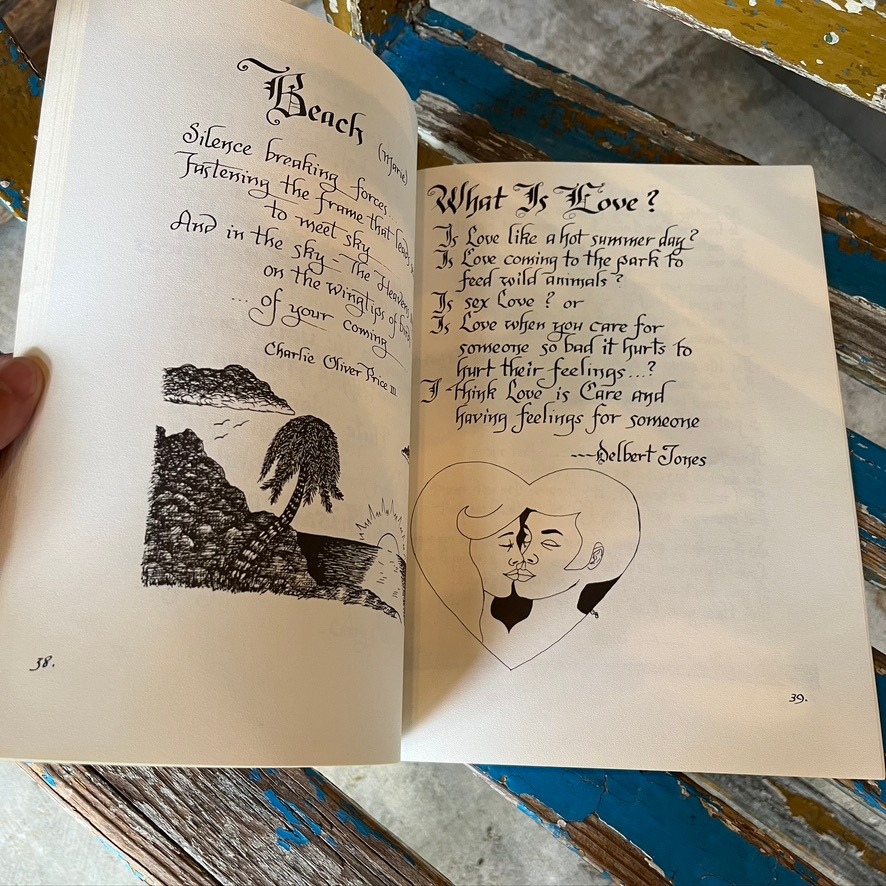 Beach
(Marie)
Silence breaking forces...
Fastening the frame that leads
to meet sky
And in the sky - The Heavens
on the wingtips of
... of your coming
Charlie Oliver Price III
38.
What Is Love?
Is Love like a hot summer day?
Is Love coming to the park to
feed wild animals?
Is sex Love? or
Is Love when you care for
someone so bad it hurts to
hurt their feelings...?
I think Love is Care and
having feelings for someone
---Delbert Jones
39.